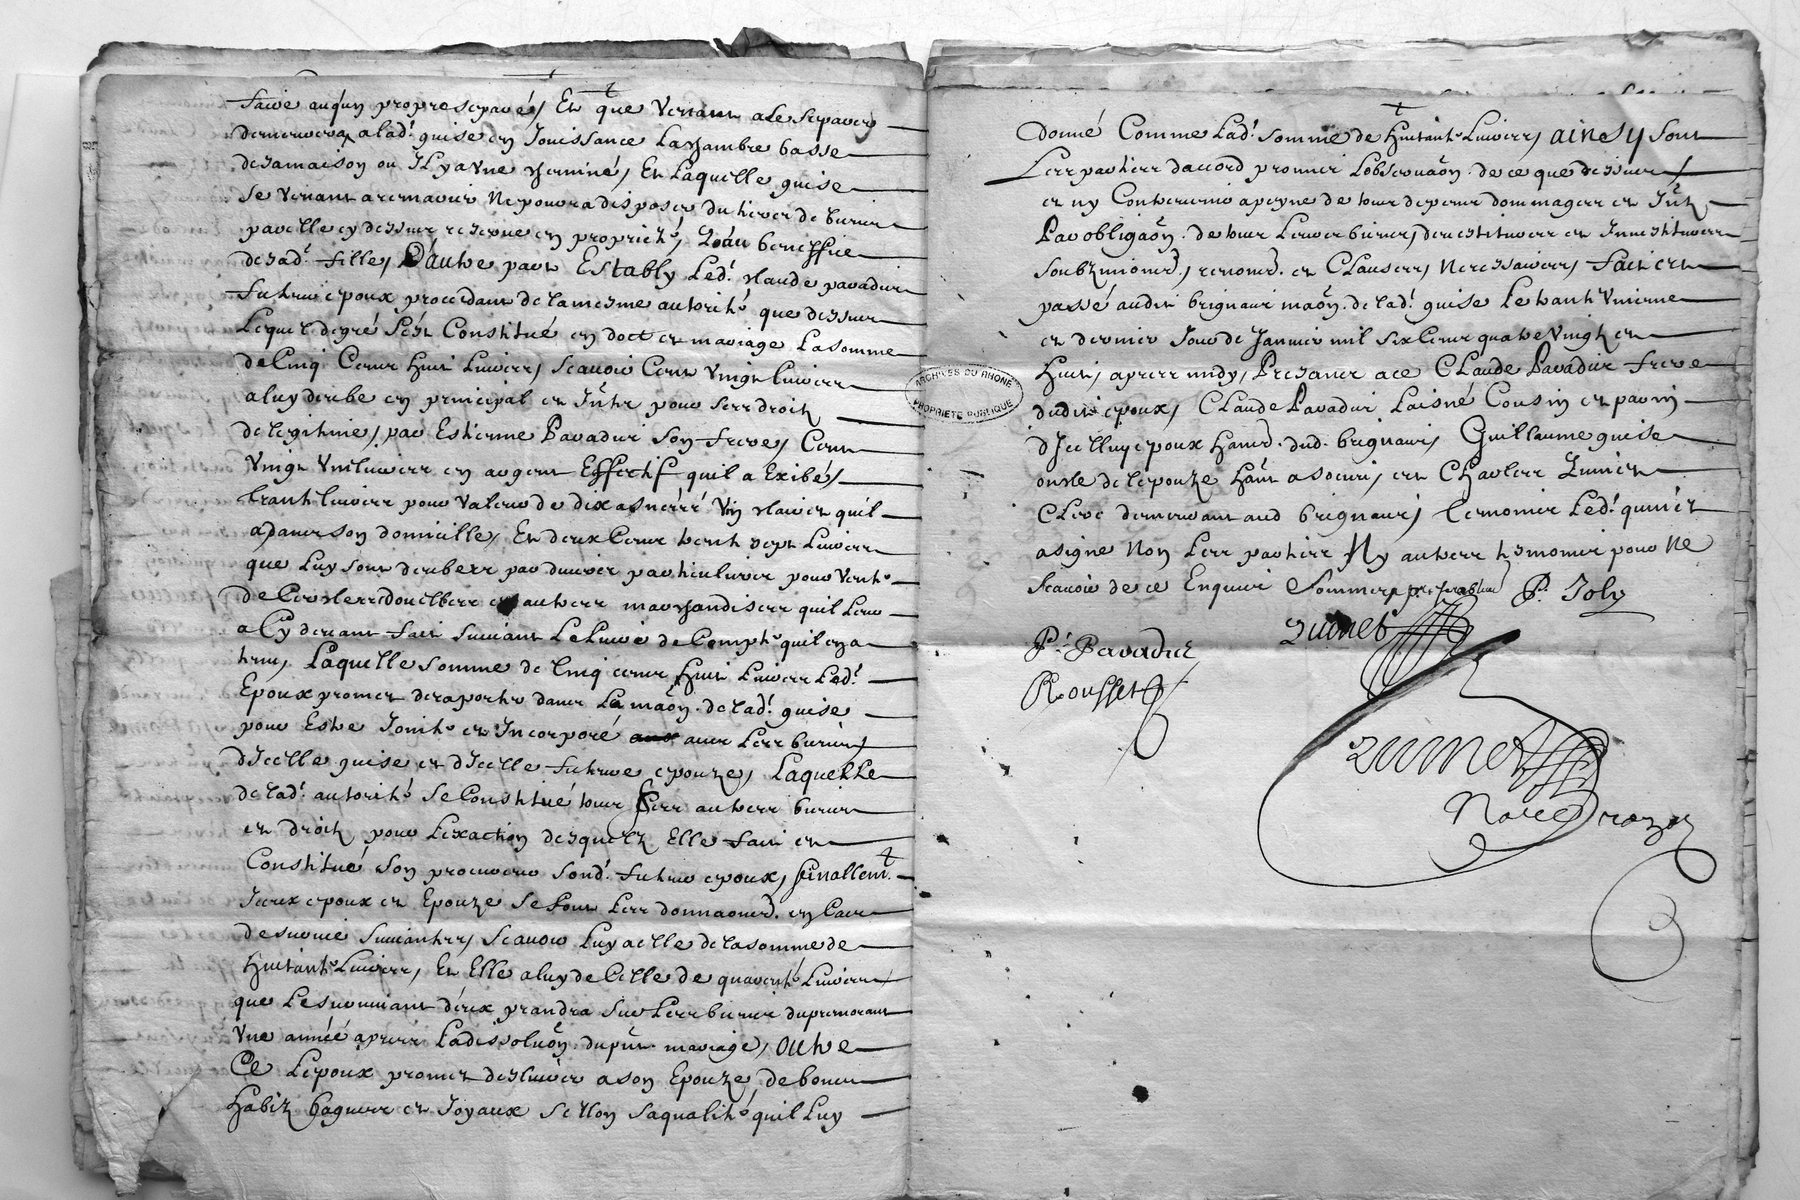 faire auqun propre separé, Et que Venant a Se Separer
demeurera a lad.t guise en Jouissance La chambre basse
desa maison ou Il y a Vne cheminé, Et Laquelle guise
Se Venant a remarier Ne pourra disposer du tiers de biens
par elle cy dessus reservé en proprieté, qu'au beneffice
de sad.t fille, D'autre part Estably Led.t claude paradis
futur epoux procedant de la mesme autorité que dessus
Lequel de gré s'est Constitué en doct et mariage La somme
de Cinq Cens huit Livres, Scavoir Cent Vingt livres
a luy deube en principal et Intz pour ses droitz
de legitime, par Estienne Paradis Son frere, Cent
Vingt Vn livres en argent Effectif quil a Exibés,
trante livres pour Valeur de dix asnéés Vin clairet quil
a dans son domicille, Et deux Cens trente sept Livres
que Luy sont deubes par divers particuliers pour Vente
de et autres marchandises quil Leur
a Cy devant fait Suivant Le Livre de Compte quil en a
tenu, Laquelle somme de Cinq cens huit Livres Led.t
Epoux promet de raporter dans La maon de lad.t guise
pour Estre Jointe et Incorporé avec Les biens
d'Icelle guise et d'Icelle future epouze, Laquelle
de lad.t autorité Se Constitue tous Ses autres biens
et droitz pour L'exaction desquelz Elle fait et
Constitué Son procureur Sond.t futur epoux, finallemt.
Iceux epoux et Epouze Se font Les donnaons en Cas
de survie Suivantes, Scavoir Luy a elle de la somme de
huitante Livres, Et Elle a luy de Celle de quarente Livres
que Le survivant d'eux prandra Sur Les biens du premourant
Vne année apres La dissoluon du pnt mariage, outre
Ce L'epoux promet desliver a son Epouze de bons
habitz bagues et Joyaux Sellon Sa qualité quil Luy
donné Comme Lad.t somme de huitante Livres, ainsy sont
Les parties d'accord promis L'observaon de ce que dessus
et ny Contrevenir a peyne de tous depens dommages et Intz
Par obligaon de tous Leurs biens, devestitures et Investitures
Soubzmions, renons et Clauses, Necessaires, fait et
passé audit brignais maon de lad.t guise Le trante Vnieme
et dernier Jour de Janvier mil Six Cens quatre Vingt et
huit, apres midy, Presans a ce Claude Paradis frere
dudit epoux, Claude Paradis Laisné Cousin et parrin
d'Icelluy epoux habt. dud. brignais, Guillaume guise
oncle de L'epouze hant a soucieu, et Charles Zunict
Clerc demeurant aud brignais, temoins Led.t
a signe Non Les parties Ny autres temoins pour Ne
Scavoir de ce Enquis Sommes P. Joly
P. Paradis
Rousset
ARCHIVES DU RHONE
PROPRIÉTÉ PUBLIQUE